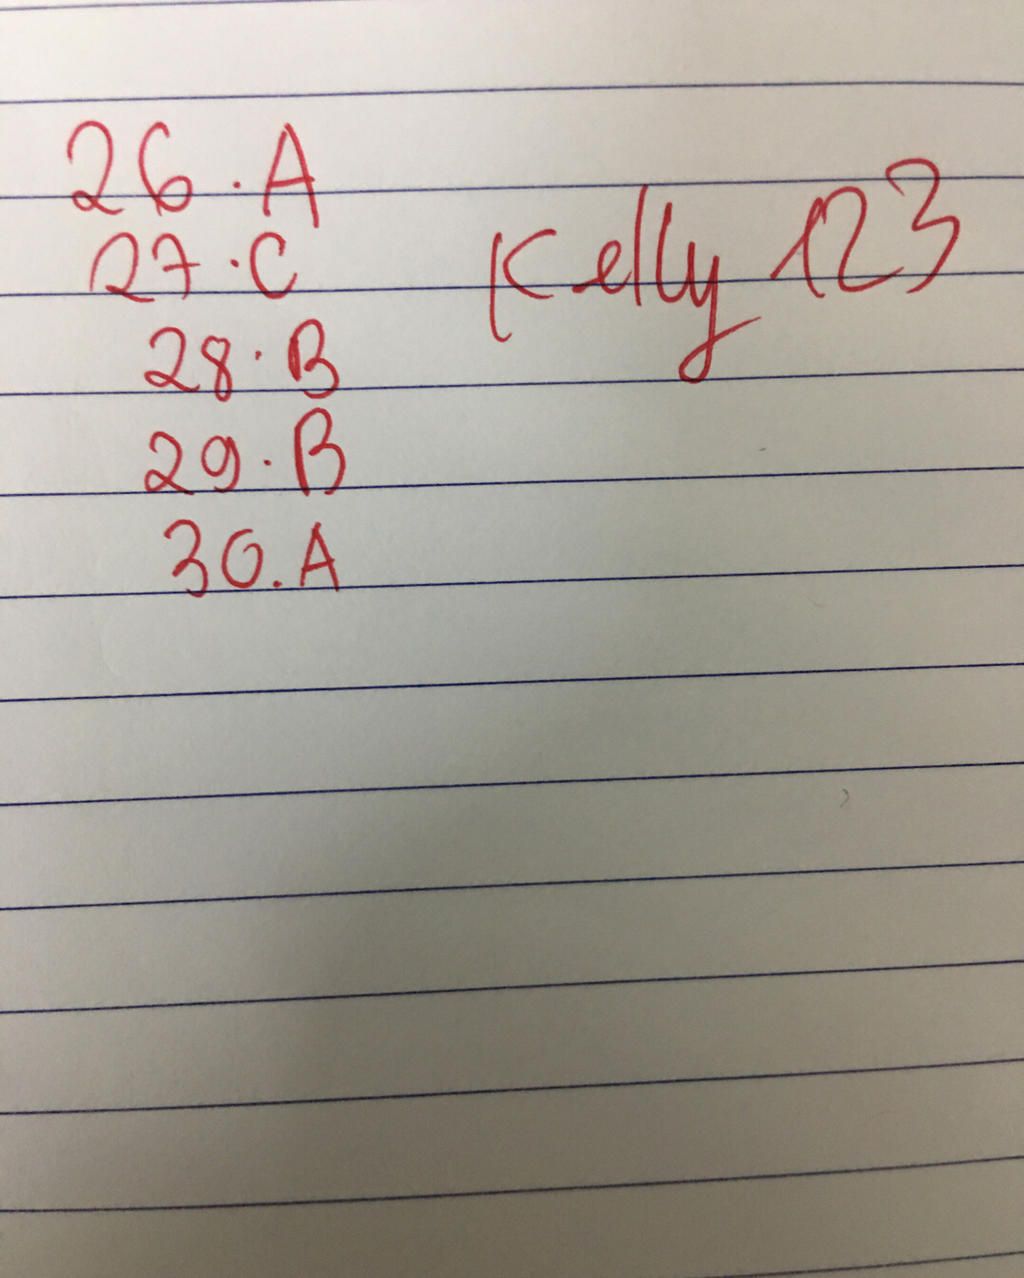 26.A
27.C
28.B
29.B
30.A
Kelly 123